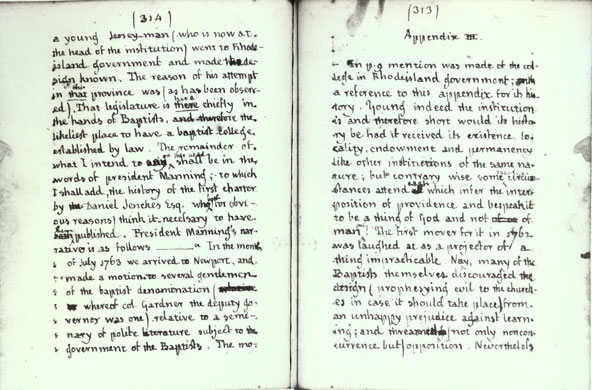 (314)
a young Jersey-man (who is now at
the head of the institution) went to Rhode-
island government and made the de-
sign known. The reason of his attempt
in this province was (as has been observ-
ed), That legislature is there chiefly in
the hands of Baptists, and therefore the
likeliest place to have a baptist College
established by law. The remainder of
what I intend to shall be in the
words of president Manning; to which
I shall add, the history of the first charter
by Daniel Jenckes Esq. who for obvi-
ous reasons) think it necessary to have
published. President Manning's nar-
rative is as follows " In the month
" of July 1763 we arrived to Newport, and
" made a motion to several gendemen
" of the baptist denomination (
" whereof col. Gardner the deputy go-
" vernor was one) relative to a semi-
" nary of polite literature subject to the
" government of the Baptists. The mo-
(313)
Appendix III.
In p. 9 mention was made of the col-
ledge in Rhodeisland government; with
a reference to this appendix for its his-
tory. Young indeed the institution
is and therefore short would its histo-
ry be had it received its existence, lo-
cality, endowment and permanency
like other institutions of the same na-
ture; but contrary wise some circum-
stances attend which infer the inter-
position of providence and bespeak it
to be a thing of God and not of
man. The first mover for it in 1762
was laughed at as a projector of a
thing impracticable. Nay, many of the
Baptists themselves discouraged the
design (prophesying evil to the church-
es in case it should take place) from
an unhappy prejudice against learn-
ing; and threatned not only noncon-
currence but opposition. Neverthelefs